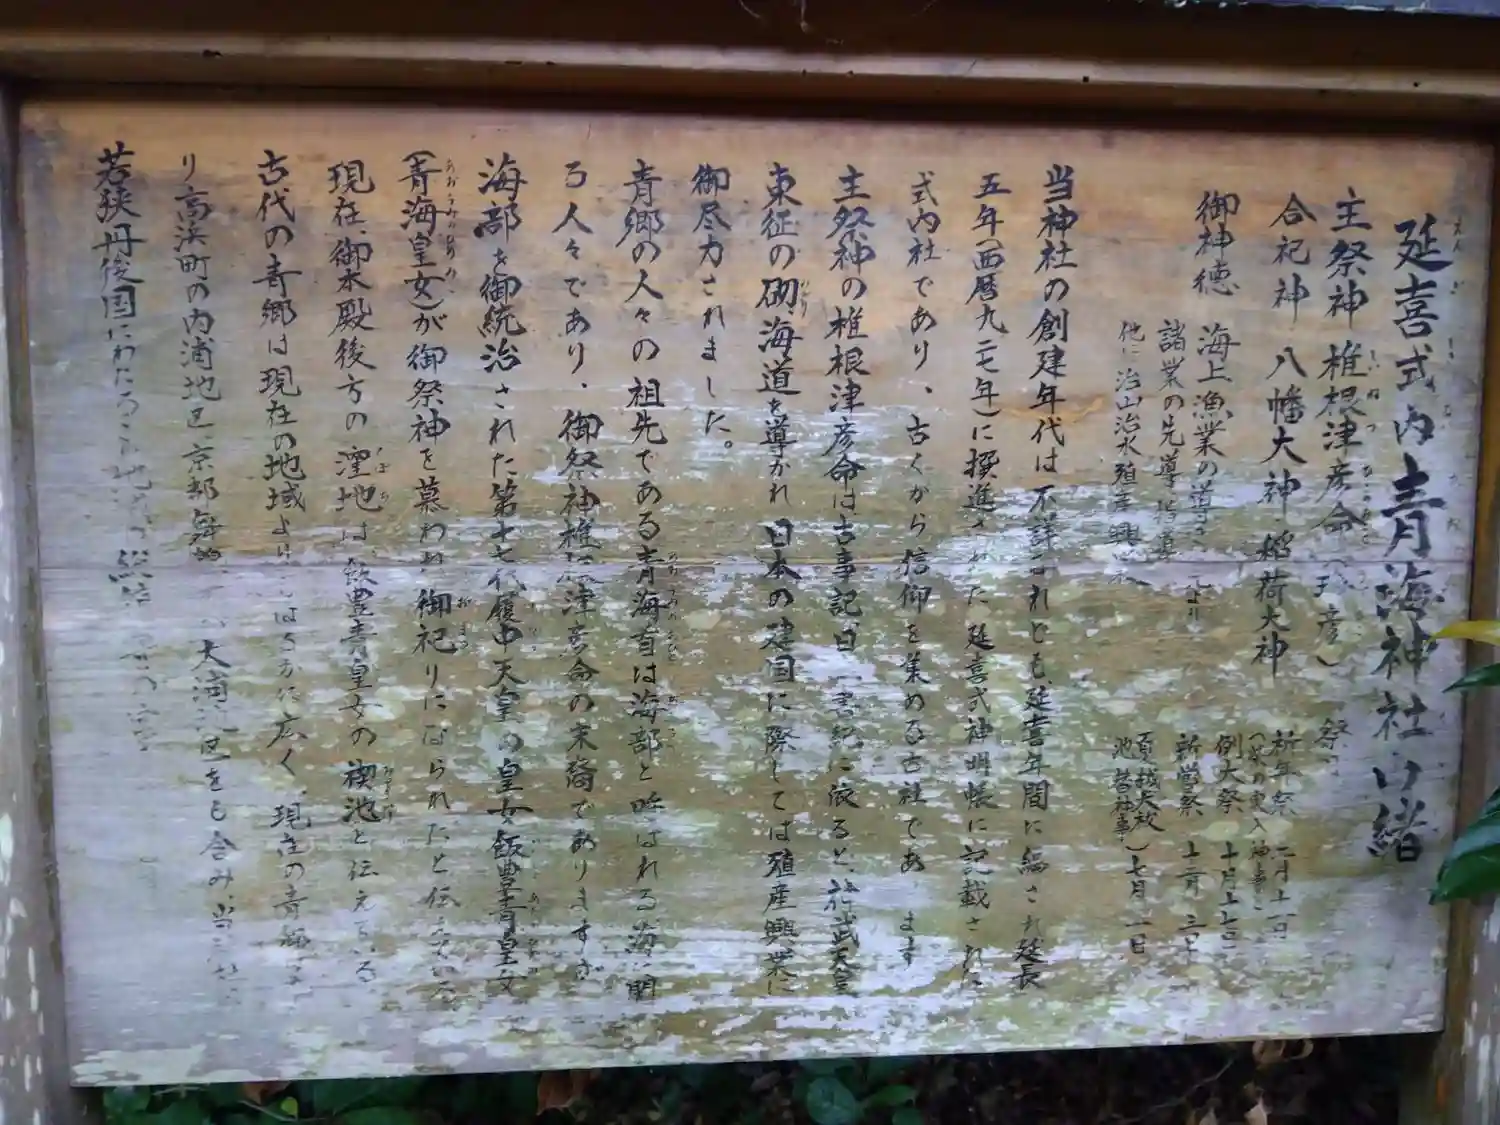 延喜式内青海神社由緒
主祭神 椎根津彦命
合祀神 八幡大神 稲荷大神
御神徳 海上漁業の導き
諸業の先導 指導
他に治山治水殖産興
祭
祈年祭 二月十一日
例大祭 十月十七日
新嘗祭
夏越大祓 七月一日
池替神事
当神社の創建年代は不詳なれども、延喜年間に編され延長
五年(西暦九二七年)に撰進された延喜式神明帳に記載された
式内社であり、古くから信仰を集める古社であ ます
主祭神の椎根津彦命は古事記、日 書紀に依ると、神武天皇
東征の砌海道を導かれ日本の建国に際しては殖産興業に
御尽力されました。
青郷の人々の祖先である青海首は海部と呼ばれる海に関
る人々であり、御祭神椎根津彦命の末裔でありますが
海部を御統治された第十七代履中天皇の皇女飯豊青皇女
(青海皇女)が御祭神を慕われ御祀りになられたと伝えている
現在、御本殿後方の窪地は、飯豊青皇女の禊池と伝えている
古代の青郷は現在の地域より はるかに広く、現在の青郷
り高浜町の内浦地区 京都 舞鶴 大浦 区をも含み、当
若狭丹後国にわたる